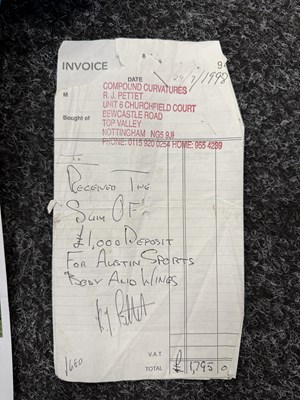 INVOICE
DATE
/1998
M
COMPOUND CURVATURES
R. J. PETTET
UNIT 6 CHURCHFIELD COURT
Bought of
BEWCASTLE ROAD
TOP VALLEY
NOTTINGHAM NG5 9JI
PHONE: 0115 920 0254 HOME: 955 4299
RECEIVED THE
SUM OF
£1,000 DEPOSIT
FOR AUSTIN SPORTS
BODY AND WINGS
R J Pettet
V.A.T.
TOTAL £ 1,795 0